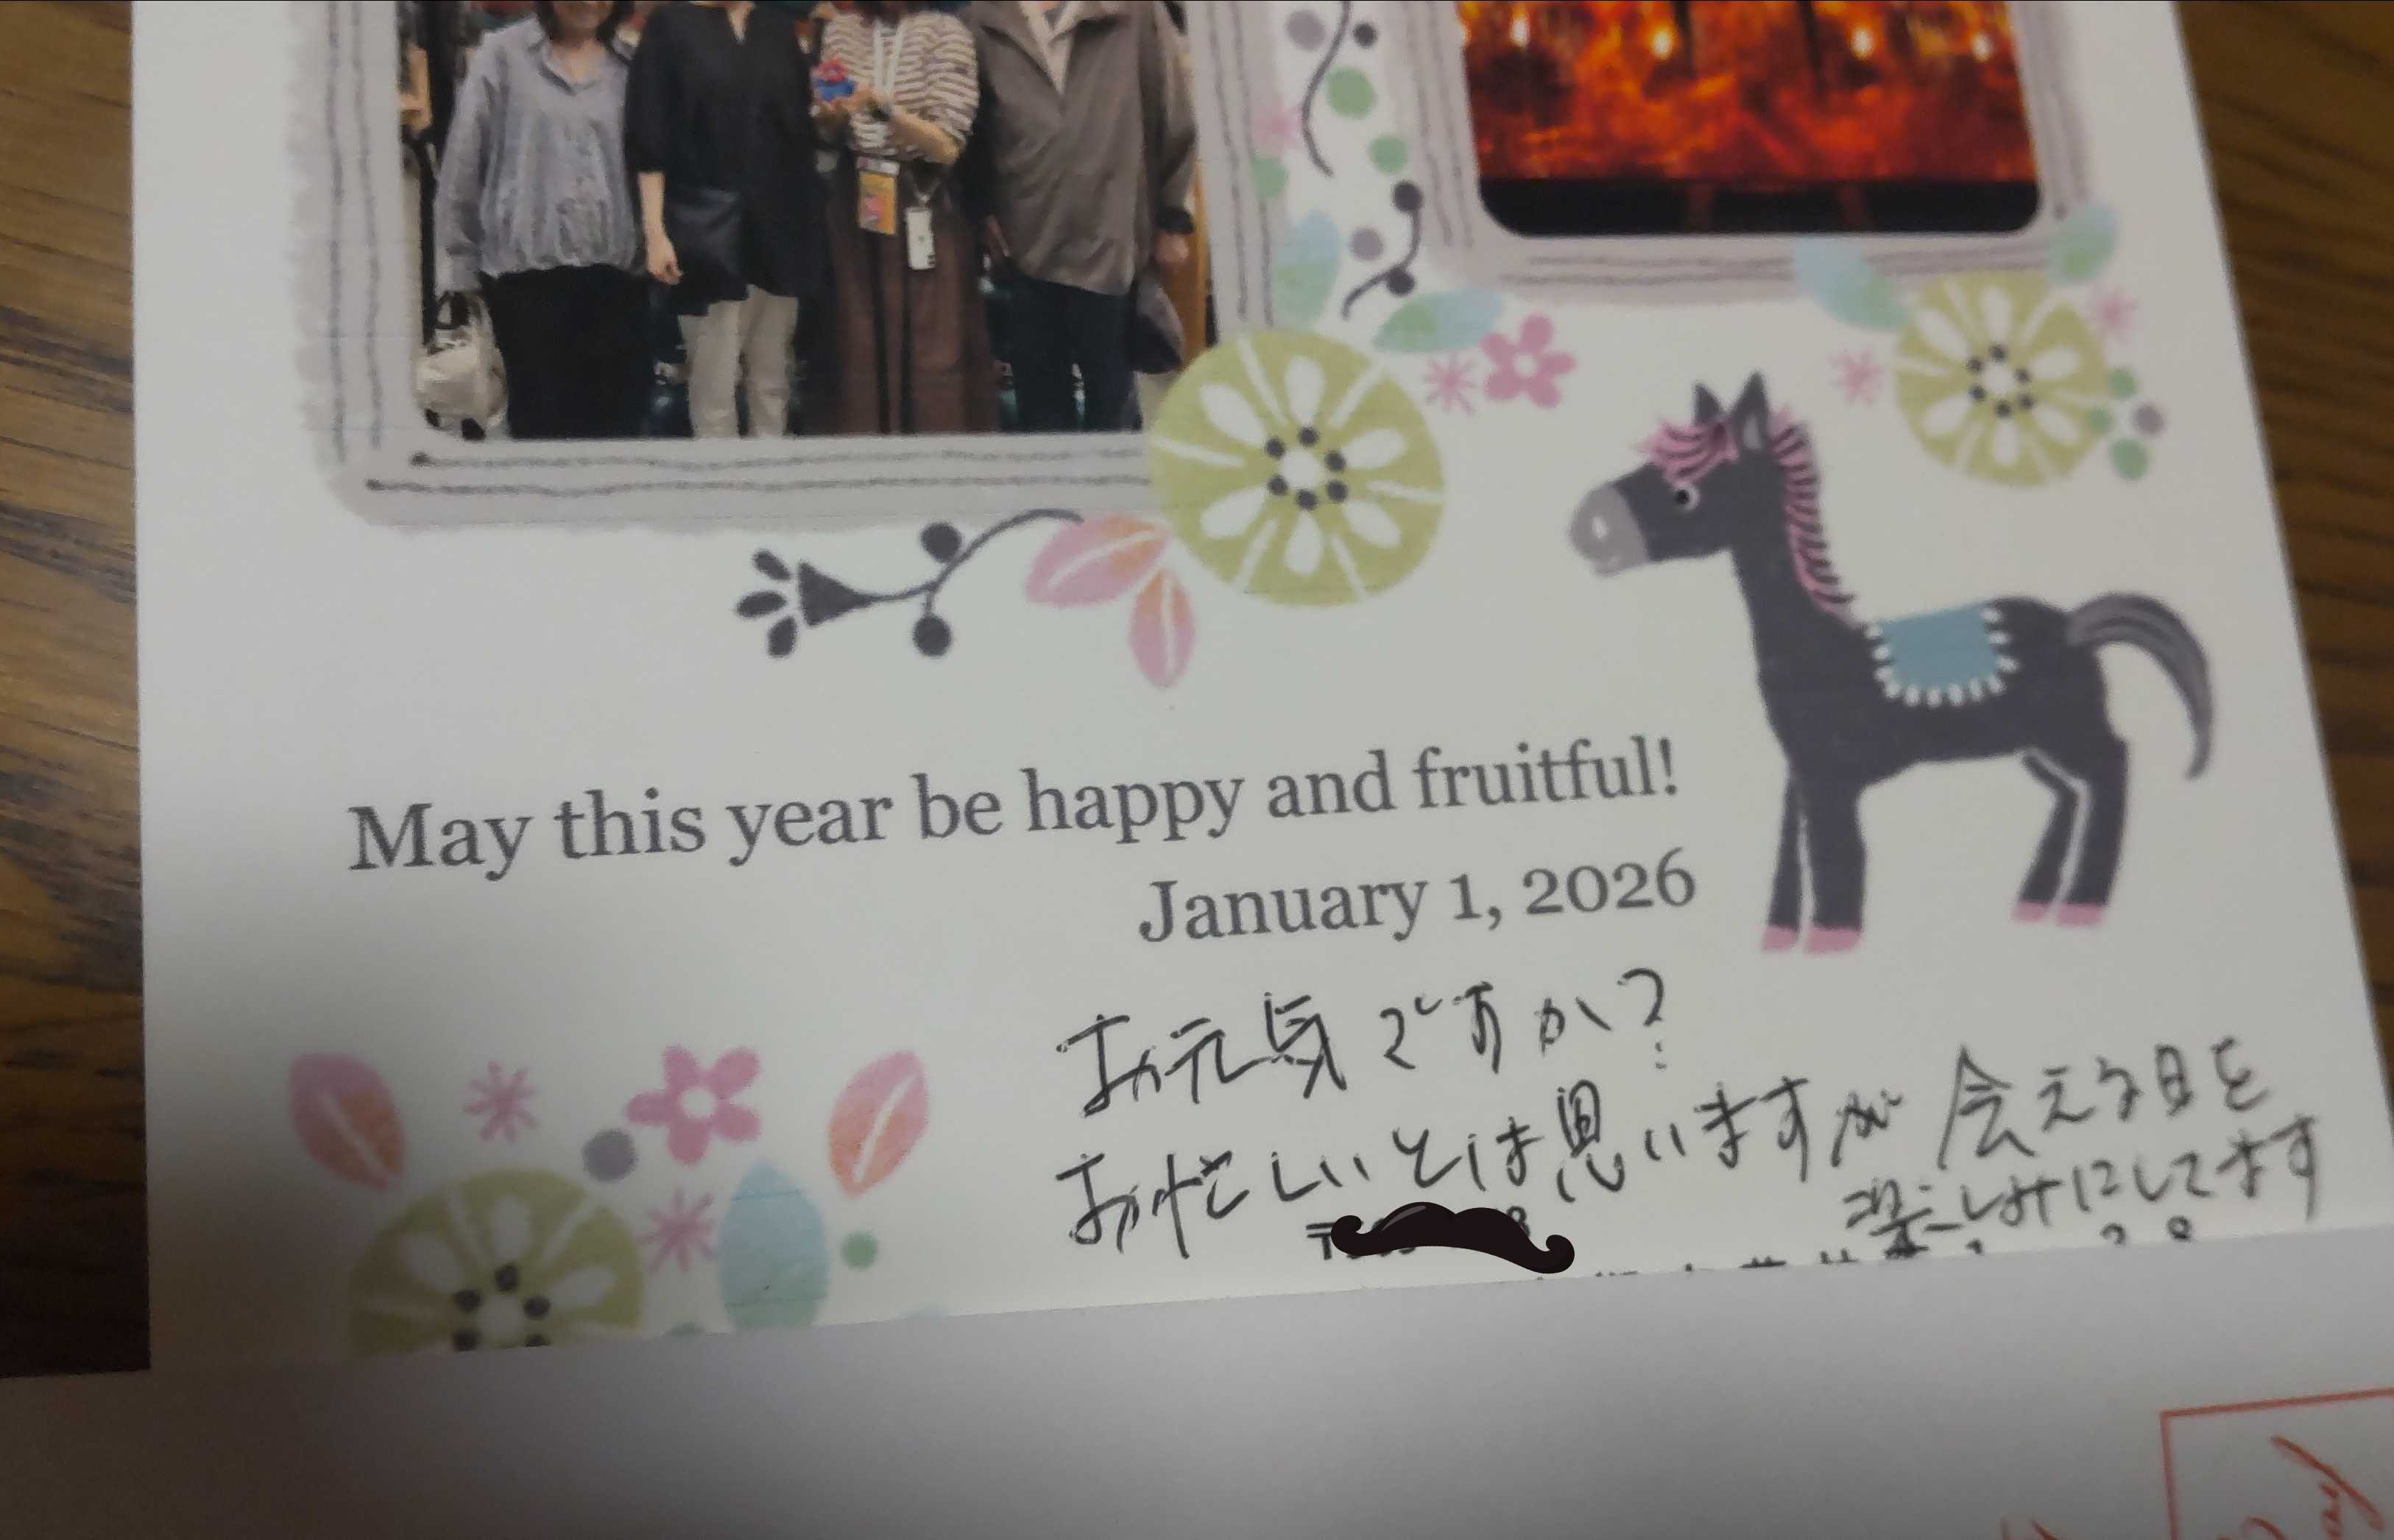 May this year be happy and fruitful!
January 1, 2026
お元気ですか?
お忙しいとは思いますが 会える日を
楽しみにしてます
〒